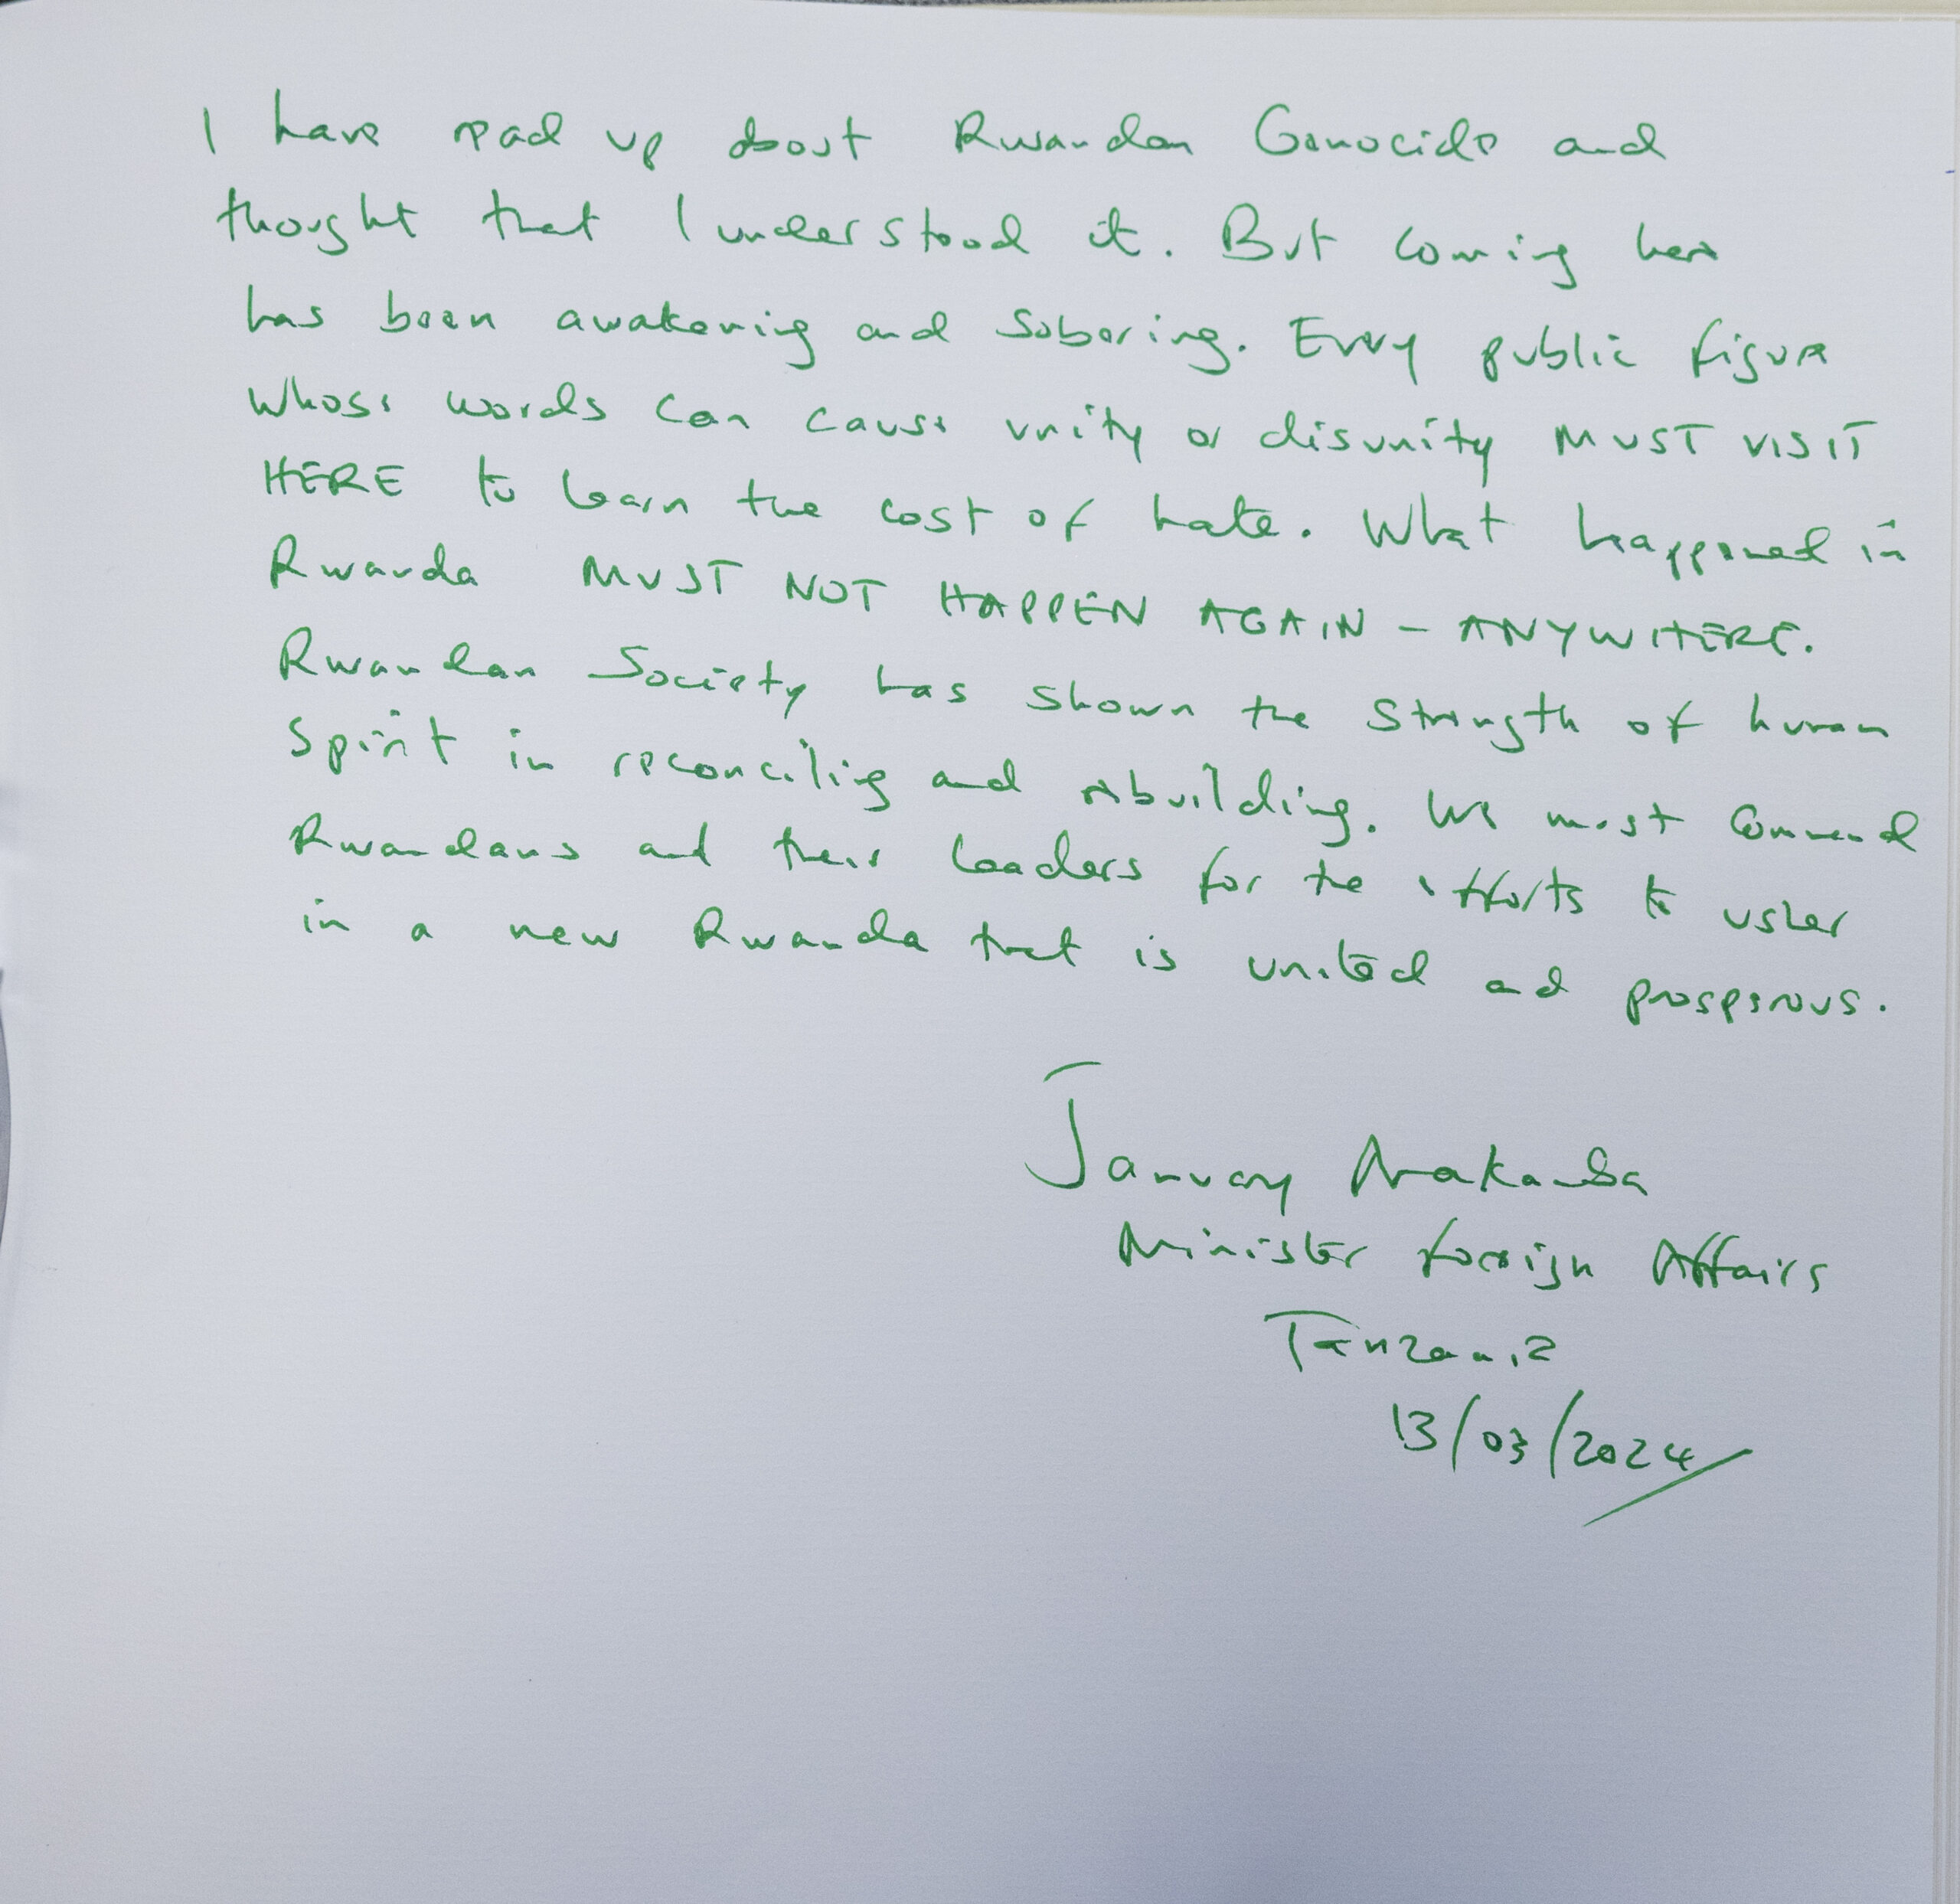 I have read up about Rwandan Genocide and
thought that I understood it. But coming here
has been awakening and sobering. Every public figure
whose words can cause unity or disunity MUST VISIT
HERE to learn the cost of hate. What happened in
Rwanda MUST NOT HAPPEN AGAIN – ANYWHERE.
Rwandan Society has shown the strength of human
spirit in reconciling and rebuilding. We must commend
Rwandans and their leaders for the efforts to usher
in a new Rwanda that is united and prosperous.
January Makamba
Minister Foreign Affairs
Tanzania
13/03/2024